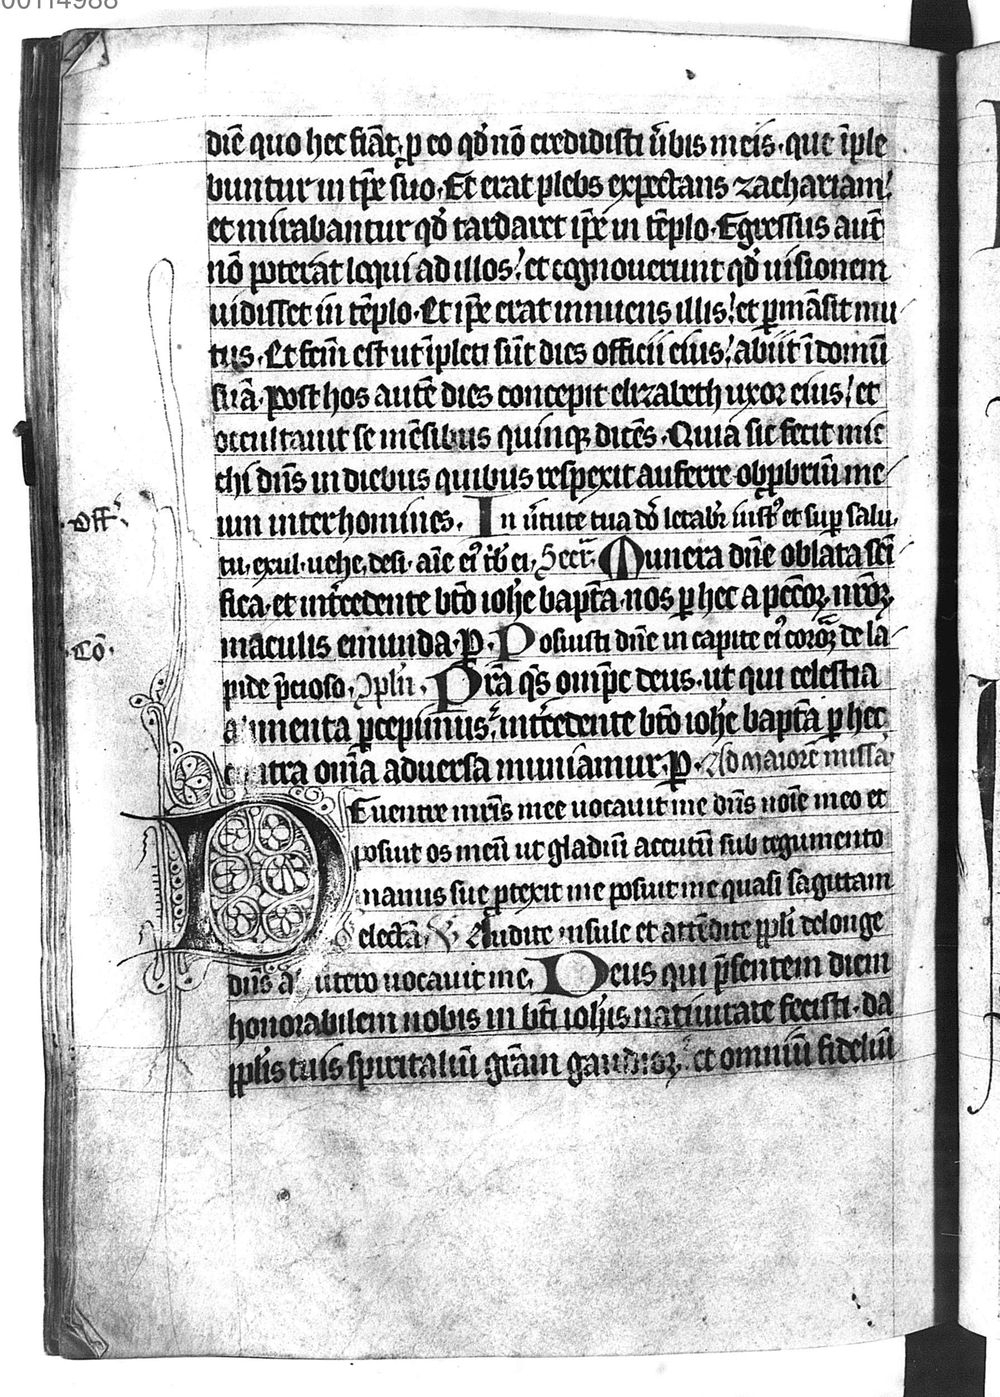 00114988
diē quo hec fiāt; ꝓ eo qđ nō credidisti ūbis meis. que īple
buntur in tp̄re suo. Et erat plebs expectans zachariam.
et mirabantur qđ tardaret ip̄e in tēplo. Egressus aut̄
nō poterāt loqui ad illos: et cognouerunt qđ uisionem
uidisset in tēplo. Et ip̄e erat innuens illis: et ꝑmāsit mu
tus. Et fc̄m est ut īpleti sūt dies officii eius: abiit ī domū
suā. Post hos autē dies concepit elizabeth uxor eius: et
occultauit se mēsibus quinqꝫ dicēs. Quia sic fecit mi
chi dn̄s in diebus quibus respexit auferre obꝓbriū me
um inter homines. In ūtute tua dō letabr̄ iust᷒ et suꝑ salu
Off᷒.
tu. exul. uehe. desi. aīe ei᷒ tͥb ei. Secr̄. Munera dn̄e oblata sc̄i
fica. et int̄cedente bt̄o ioh̄e bapt̄a. nos ꝑ hec a pec̄coꝝ nr̄oꝝ
maculis emunda. P. Posuisti dn̄e in capite ei᷒ coroā de la
Cō.
pide p̄cioso. Pr̄a qs̄ omp̄c deus. ut qui celestia
menta ꝑcepimus: int̄cedente bt̄o ioh̄e bapt̄a ꝑ hec
tra om̄ia aduersa muniamur. P. Ad maiorē missā
De uentre mr̄is mee uocauit me dn̄s noīe meo et
posuit os meū ut gladiū accutū sub tegumento
manus sue ꝓtexit me posuit me quasi sagittam
electā. Audite insule et attēdite ppl̄i delonge
dn̄s a utero uocauit me. Deus qui p̄sentem diem
honorabilem nobis in bt̄i ioh̄is natiuitate fecisti. da
ppl̄is tuis spiritaliū gr̄am gaudioꝝ: et omniū fideliū